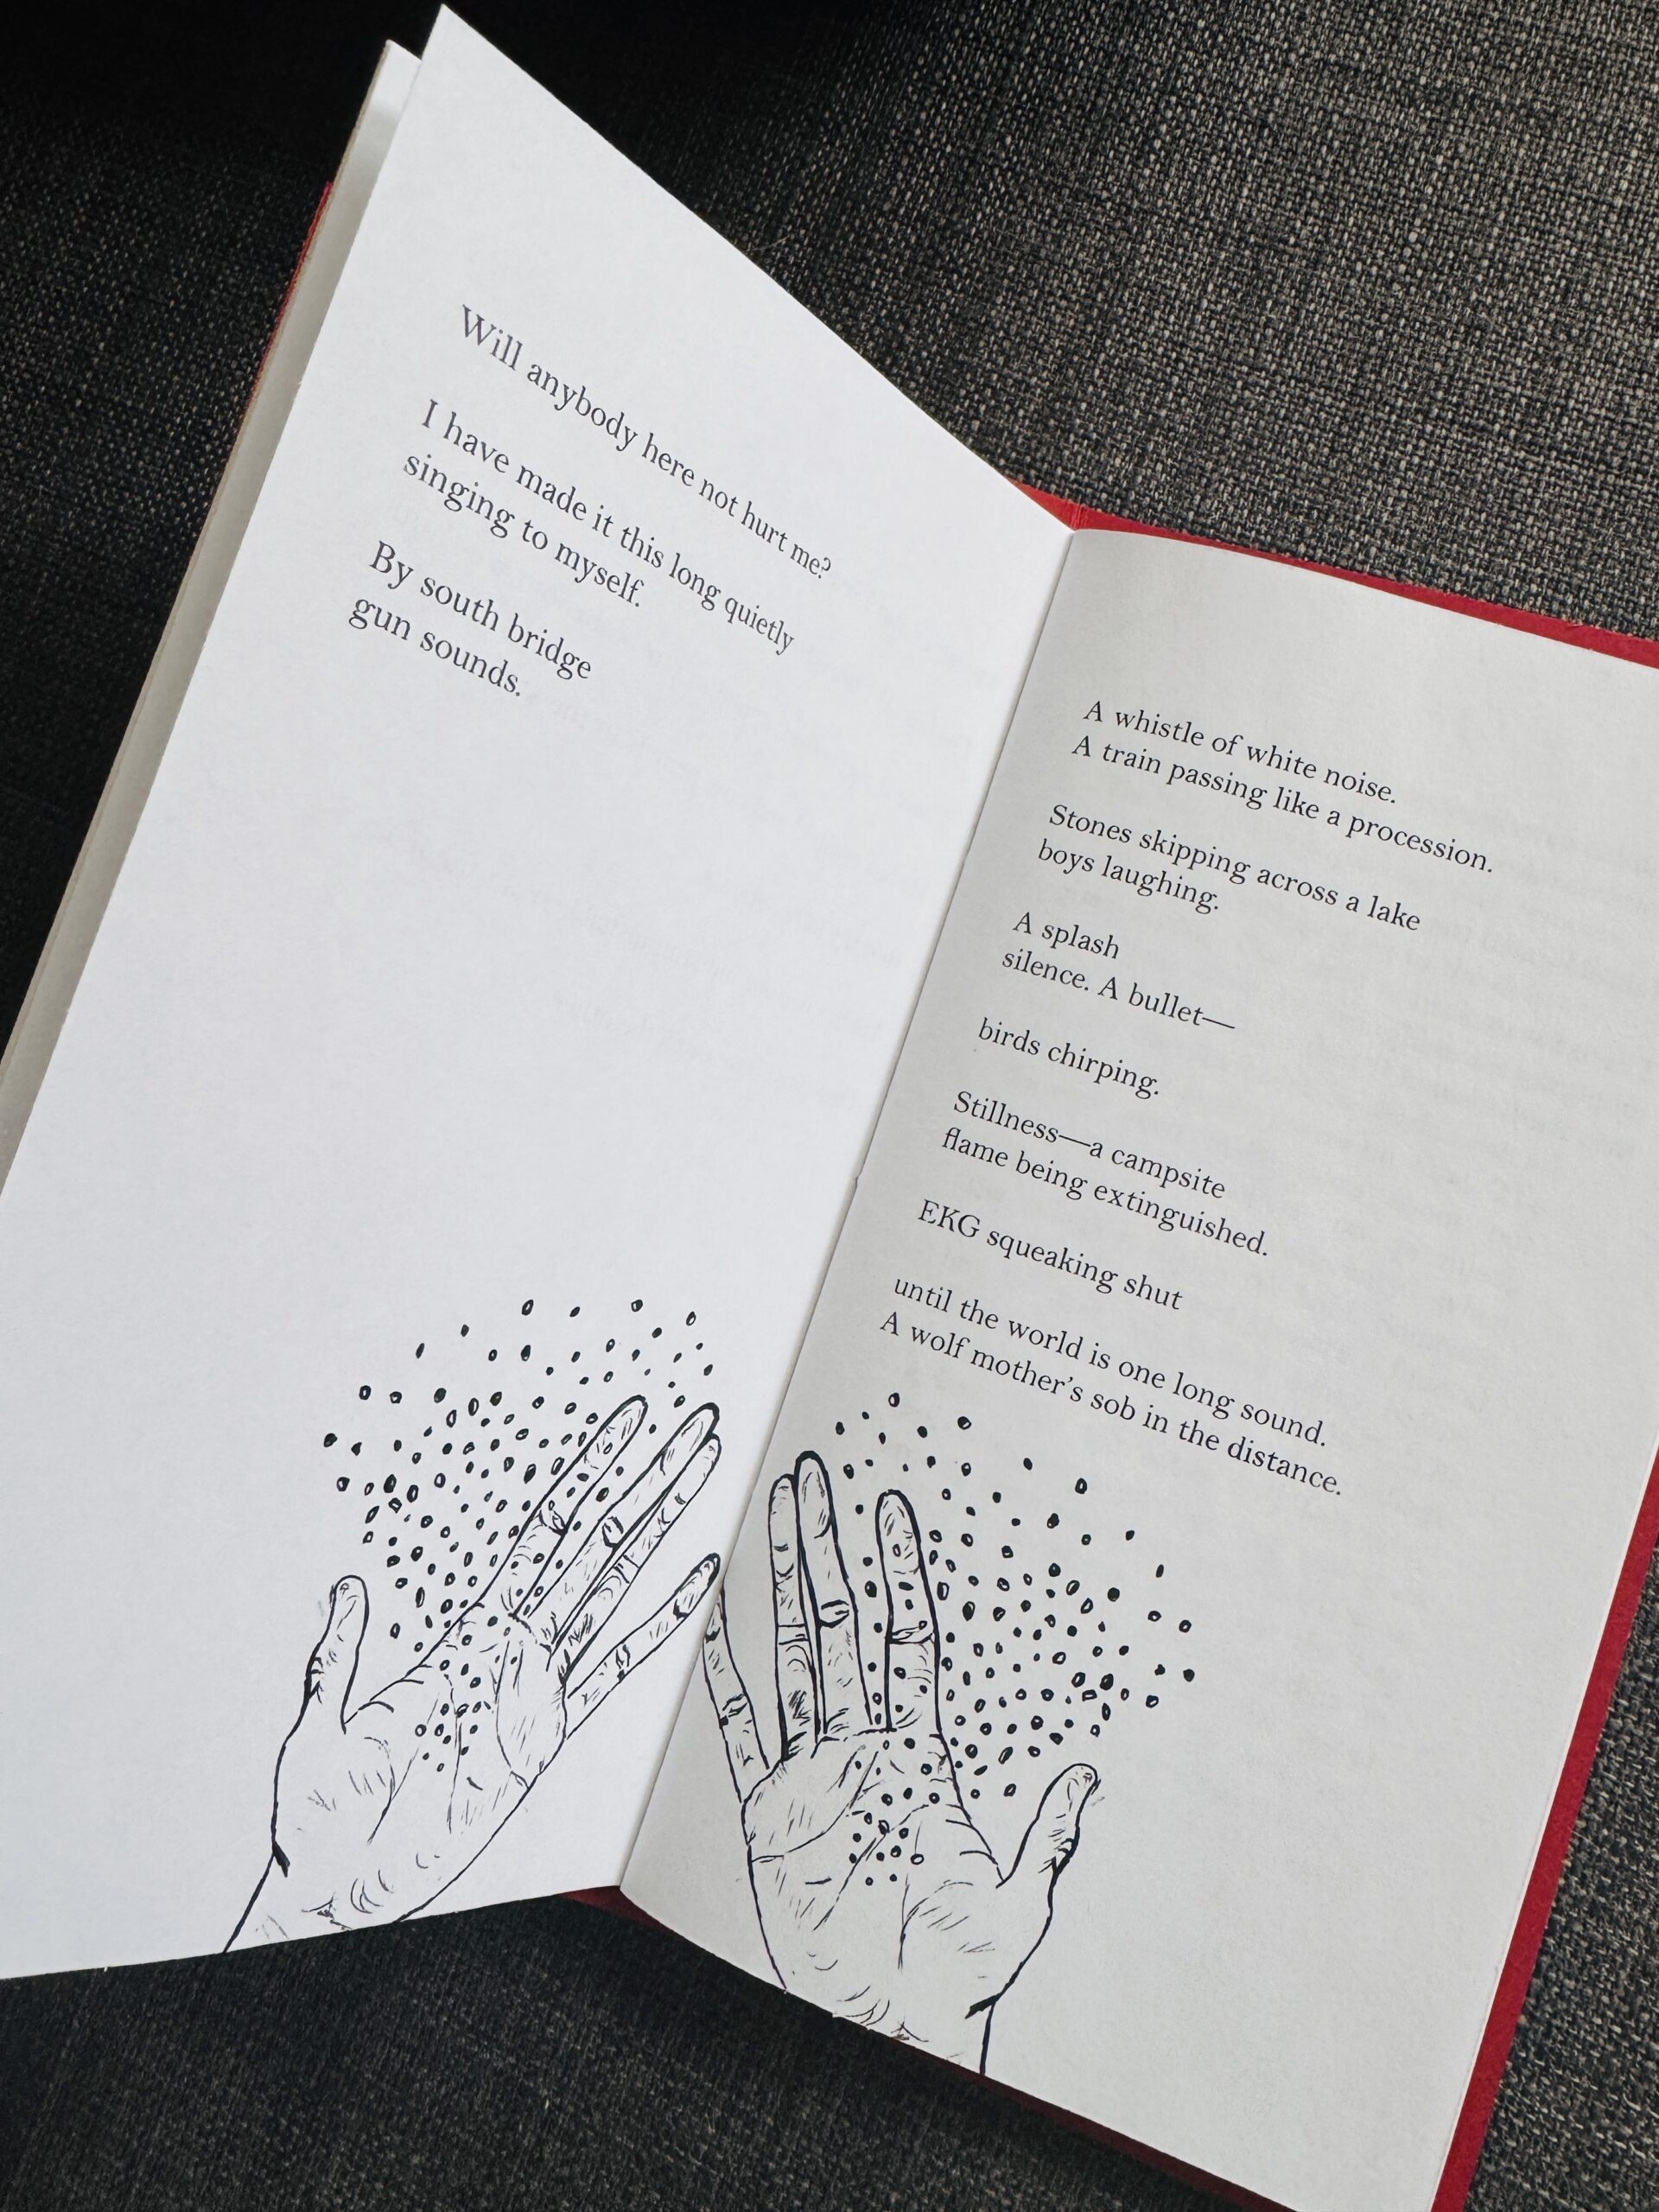 Will anybody here not hurt me?
I have made it this long quietly
singing to myself.
By south bridge
gun sounds.
A whistle of white noise.
A train passing like a procession.
Stones skipping across a lake
boys laughing.
A splash
silence. A bullet—
birds chirping.
Stillness—a campsite
flame being extinguished.
EKG squeaking shut
until the world is one long sound.
A wolf mother’s sob in the distance.